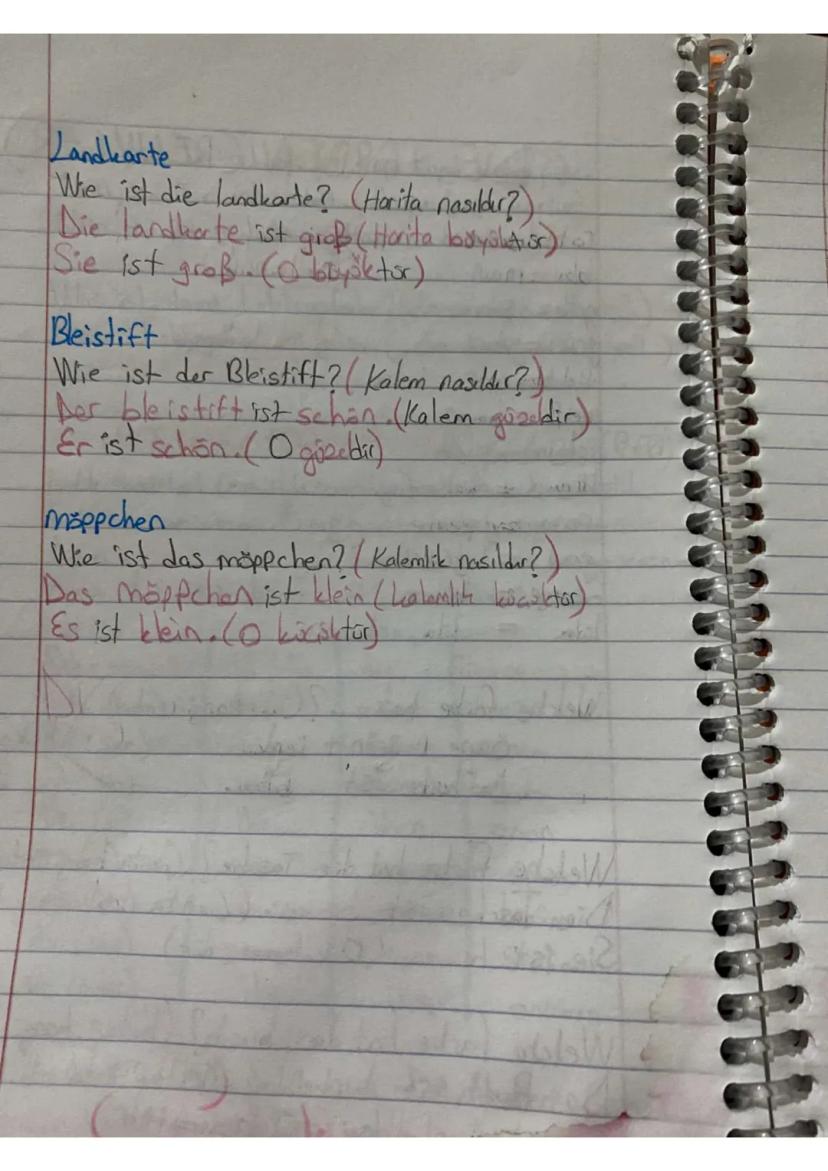 Landkarte
Wie ist die landkarte? (Harita nasıldır?)
Die landkarte ist groß (Harita büyüktür)
Sie ist groß. (O büyüktür)
Bleistift
Wie ist der Bleistift? (Kalem nasıldır?)
Der bleistift ist schön. (Kalem güzeldir)
Er ist schön. (O güzeldir)
mäppchen
Wie ist das mäppchen? (Kalemlik nasıldır?)
Das mäppchen ist klein (kalemlik küçüktür)
Es ist klein. (O küçüktür)